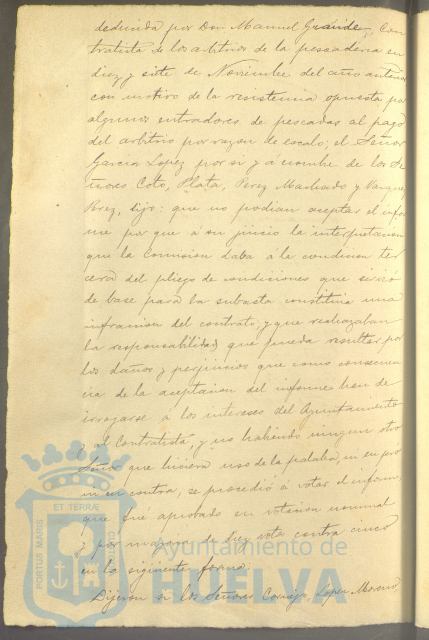 deducida por Don Manuel Grande, Con
tratista de los arbitrios de la pescadería en
diez y siete de Noviembre del año anterior
con motivo de la resistencia opuesta por
algunos entradores de pescadas al pago
del arbitrio por razon de escalo; el Señor
Garcia Lopez por si y á nombre de los Se
ñores Coto, Plata, Perez Machado y Vazquez
Perez, dijo: que no podian aceptar el infor
me por que á su juicio la interpretacion
que la Comision daba á la condicion ter
cera del pliego de condiciones que sirvió
de base para la subasta constituia una
infraccion del contrato, y que rechazaban
la responsabilidad que pueda resultar por
los daños y perjuicios que como consecuen
cia de la aceptacion del informe han de
irrogarse á los intereses del Ayuntamiento
ó al Contratista, y no habiendo ningun otro
Señor que hiciera uso de la palabra, ni en pró
ni en contra, se procedió á votar el informe,
que fué aprobado en votacion nominal
por mayoria de diez votos contra cinco
en la siguiente forma:
Dijeron si los Señores Cornejo, Lopez Moreno,
PORTUS MARIS
ET TERRÆ
Ayuntamiento de
HUELVA